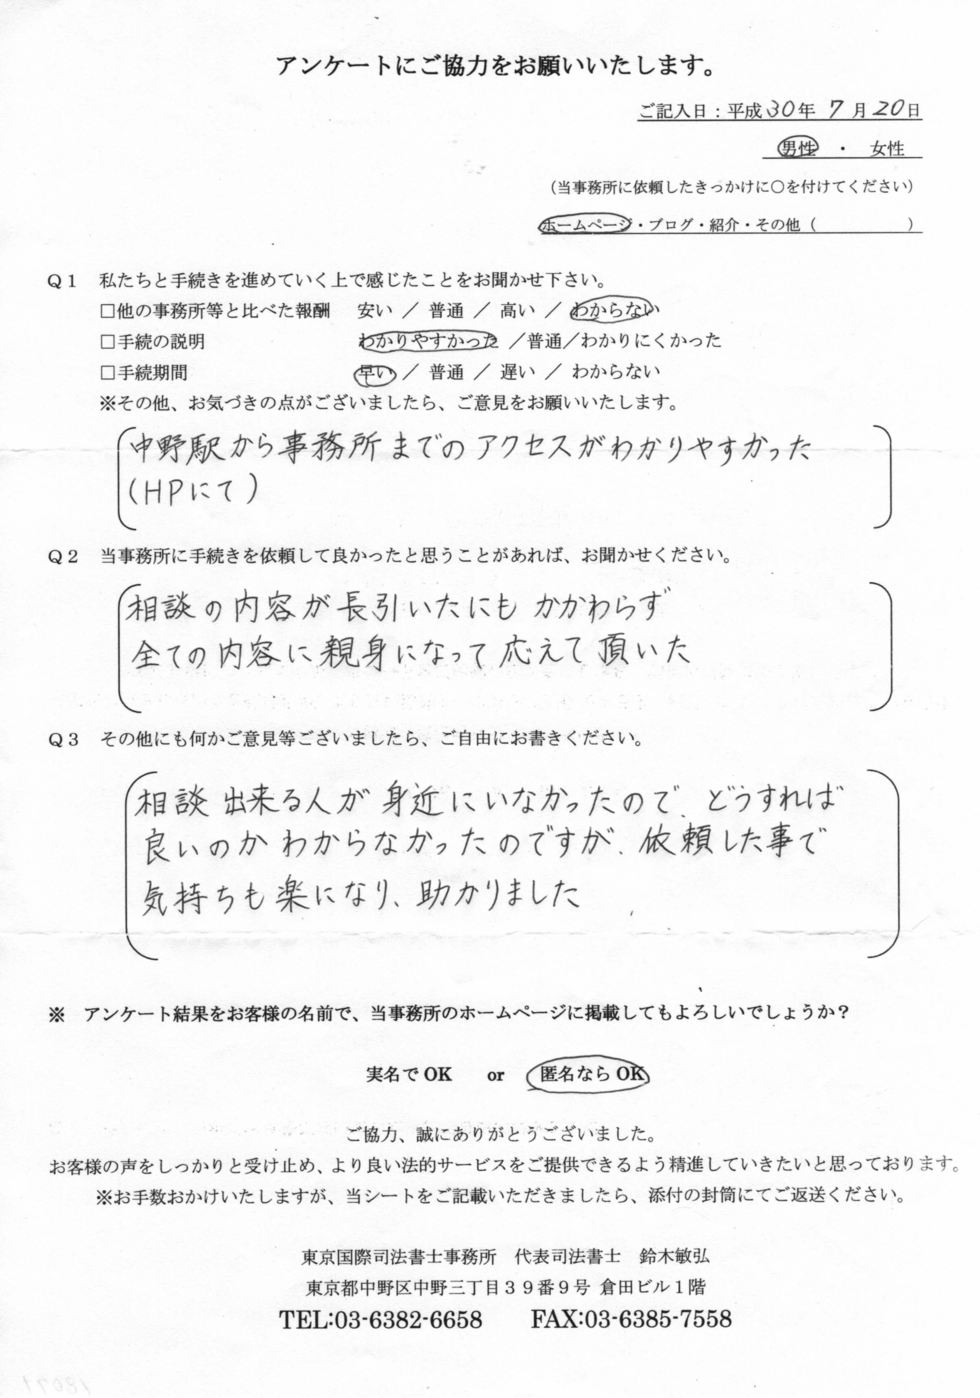 アンケートにご協力をお願いいたします。
ご記入日：平成30年 7月20日
男性 ・ 女性
（当事務所に依頼したきっかけに○を付けてください）
ホームページ・ブログ・紹介・その他（　　　　　　）
Q1 私たちと手続きを進めていく上で感じたことをお聞かせ下さい。
□他の事務所等と比べた報酬 安い ／ 普通 ／ 高い ／ わからない
□手続の説明 わかりやすかった ／普通／わかりにくかった
□手続期間 早い ／ 普通 ／ 遅い ／ わからない
※その他、お気づきの点がございましたら、ご意見をお願いいたします。
中野駅から事務所までのアクセスがわかりやすかった
(HPにて)
Q2 当事務所に手続きを依頼して良かったと思うことがあれば、お聞かせください。
相談の内容が長引いたにもかかわらず
全ての内容に親身になって応えて頂いた
Q3 その他にも何かご意見等ございましたら、ご自由にお書きください。
相談出来る人が身近にいなかったので、どうすれば
良いのかわからなかったのですが、依頼した事で
気持ちも楽になり、助かりました
※ アンケート結果をお客様の名前で、当事務所のホームページに掲載してもよろしいでしょうか？
実名でOK or 匿名ならOK
ご協力、誠にありがとうございました。
お客様の声をしっかりと受け止め、より良い法的サービスをご提供できるよう精進していきたいと思っております。
※お手数おかけいたしますが、当シートをご記載いただきましたら、添付の封筒にてご返送ください。
東京国際司法書士事務所 代表司法書士 鈴木敏弘
東京都中野区中野三丁目３９番９号 倉田ビル１階
TEL:03-6382-6658 FAX:03-6385-7558